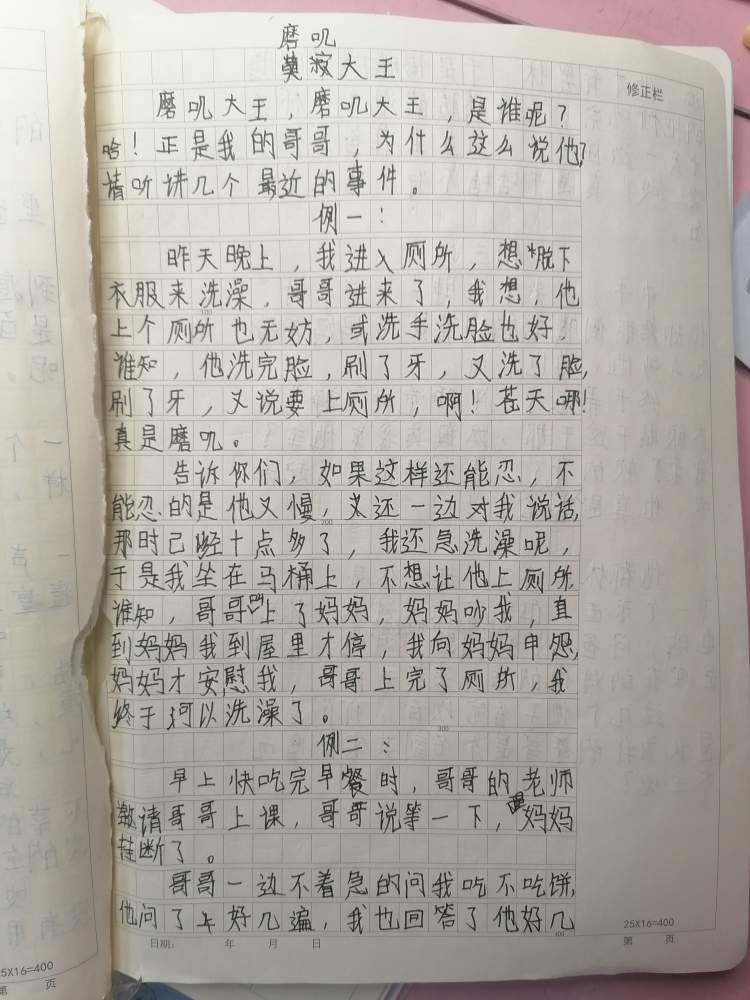 磨叽
寂大王
修正栏
磨叽大王，磨叽大王，是谁呢？
啥！正是我的哥哥，为什么这么说他？
请听讲几个最近的事件。
例一：
昨天晚上，我进入厕所，想脱下
衣服来洗澡，哥哥进来了，我想，他
上个厕所也无妨，或洗手洗脸也好，
谁知，他洗完脸，刷了牙，又洗了脸，
刷了牙，又说要上厕所，啊！苍天哪！
真是磨叽。
告诉你们，如果这样还能忍，不
能忍的是他又慢，还一边对我说话，
那时已经十点多了，我还急洗澡呢，
于是我坐在马桶上，不想让他上厕所，
谁知，哥哥叫上了妈妈，妈妈吵我，直
到妈妈我到屋里才停，我向妈妈申怨，
妈妈才安慰我，哥哥上完了厕所，我
终于可以洗澡了。
例二：
早上快吃完早餐时，哥哥的老师
邀请哥哥上课，哥哥说等一下，妈妈
挂断了。
哥哥一边不着急的问我吃不吃饼，
他问了好几遍，我也回答了他好几
日期： 年 月 日
25X16=400
第 页
25X16=400
第 页